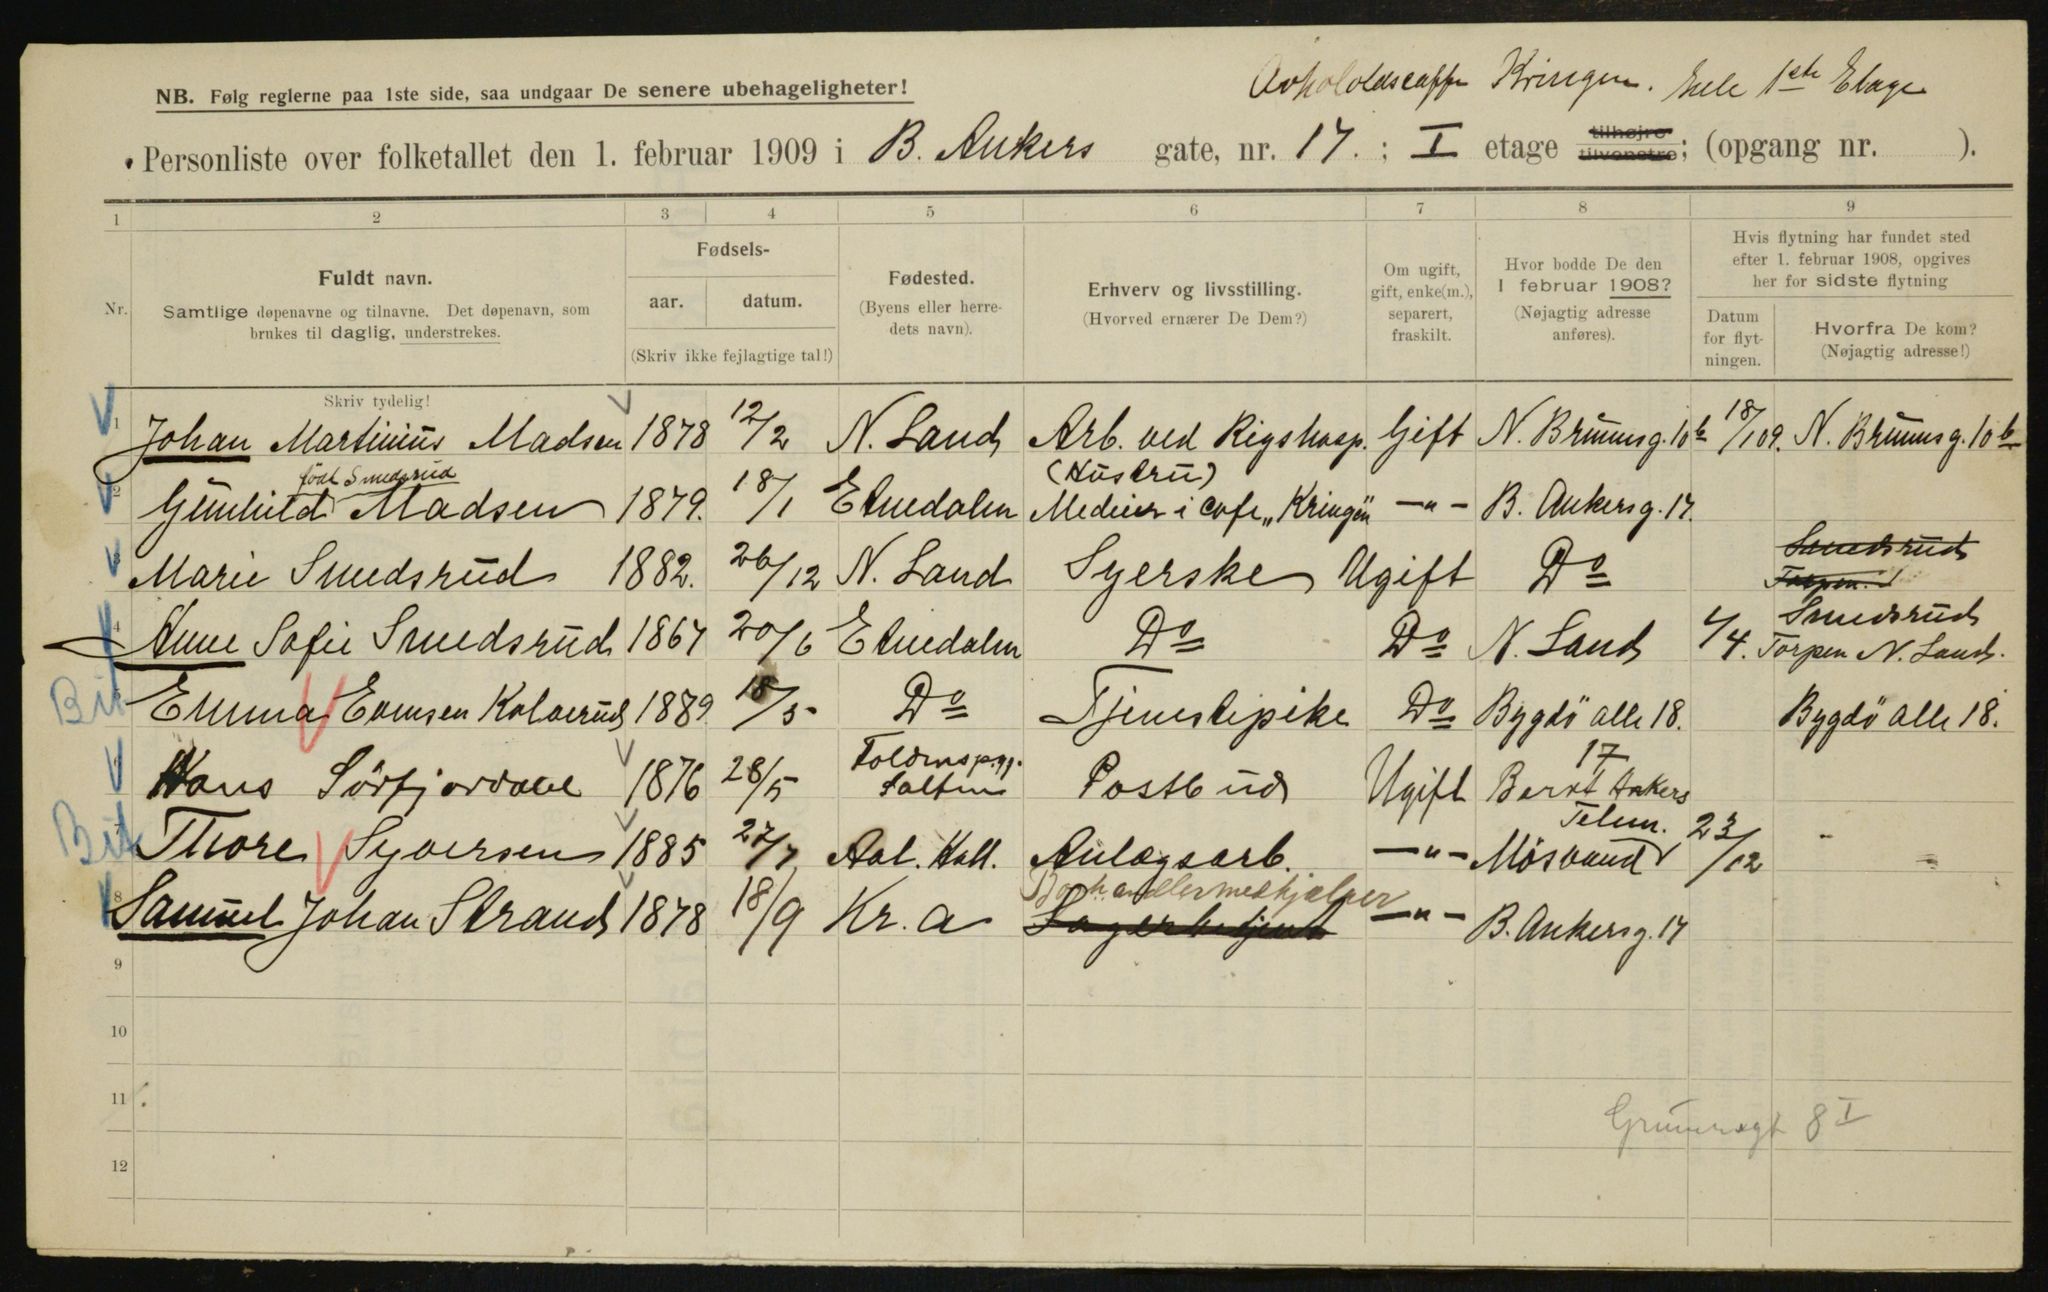 Avholdscaffe Kringen. hele 1ste Etage
NB. Følg reglerne paa 1ste side, saa undgaar De senere ubehageligheter!
Personliste over folketallet den 1. februar 1909 i B. Ankers gate, nr. 17. ; I etage tilhøjre tilvenstre; (opgang nr. ).
1 2 3 4 5 6 7 8 9
Nr.
Fuldt navn.
Samtlige døpenavne og tilnavne. Det døpenavn, som
brukes til daglig, understrekes.
Fødsels-
aar. datum.
(Skriv ikke fejlagtige tal!)
Fødested.
(Byens eller herre-
dets navn).
Erhverv og livsstilling.
(Hvorved ernærer De Dem?)
Om ugift,
gift, enke(m.),
separert,
fraskilt.
Hvor bodde De den
1 februar 1908?
(Nøjagtig adresse
anføres).
Hvis flytning har fundet sted
efter 1. februar 1908, opgives
her for sidste flytning
Datum
for flyt-
ningen.
Hvorfra De kom?
(Nøjagtig adresse!)
Skriv tydelig!
1 Johan Martinius Madsen 1878 12/2 N. Land Arb. ved Rigshosp. Gift N. Brunnsg. 10 b 18/1 09. N. Brunnsg. 10 b
født Smedsrud (Hustru)
2 Gunhild Madsen 1879. 18/1 Etnedalen Medeier i cafe „Kringen" —"— B. Ankersg. 17.
Smedsrud
3 Marie Smedsrud 1882. 26/12 N. Land Syerske Ugift Do Torpen.
Smedsrud
4 Anne Sofie Smedsrud 1867 20/6 Etnedalen Do Do N. Land 1/4. Torpen N. Land.
Bit 5 Emma Evensen Kolverud 1889 18/5 Do Tjenestepike Do Bygdö alle 18. Bygdö alle 18.
17
6 Hans Sörfjordal 1876 28/5 Salten Postbud Ugift Bernt Ankers
Telem.
Bit 7 Thore Syversen 1885 27/7 Aal. Hall. Anlægsarb. —"— Mösvand 23/12 -
Boghandlermedhjælper
8 Samuel Johan Strand 1878 18/9 Kr. a Lagerbetjent —"— B. Ankersg. 17
9
10
11
Grünersgt 8 I
12